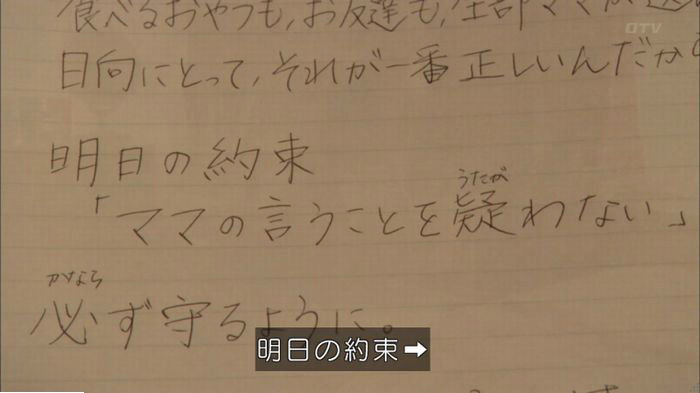 食べるおやつも,お友達も,全部ママが選
日向にとって,それが一番正しいんだから
明日の約束
うたが
「ママの言うことを疑わない」
かなら
必ず守るように。
明日の約束➡
OTV